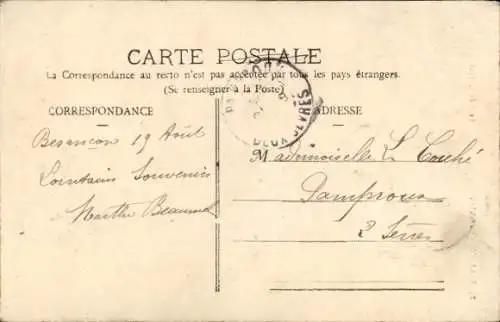 CARTE POSTALE
La Correspondance au recto n'est pas acceptée par tous les pays étrangers.
(Se renseigner à la Poste)
CORRESPONDANCE
Besançon 19 Août
Lointains Souvenirs
Marthe
ADRESSE
Mademoiselle L. Couché
Pamproux
2 Sèvres
DEUX SÈVRES